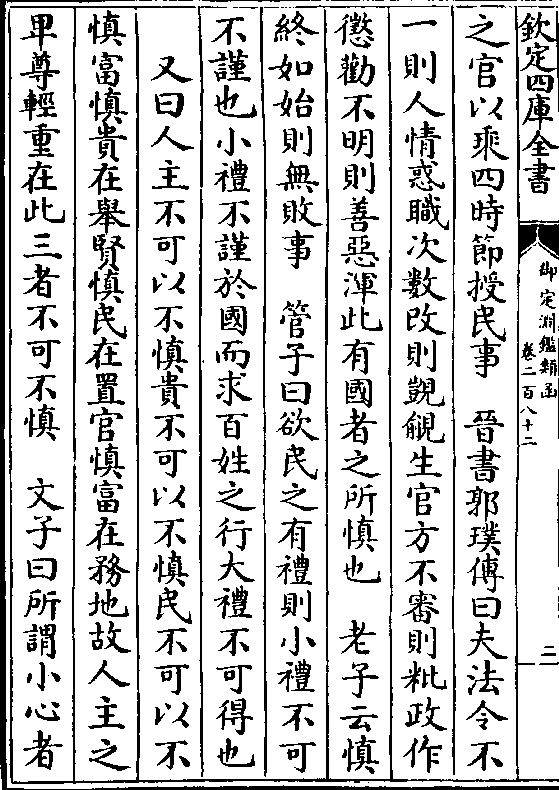 欽定四庫全書
御定淵鑑類函
卷二百八十二
二
之官以乘四時節授民事　晉書郭璞傳曰夫法令不
一則人情惑職次數改則覬覦生官方不審則粃政作
懲勸不明則善惡渾此有國者之所慎也　老子云慎
終如始則無敗事　管子曰欲民之有禮則小禮不可
不謹也小禮不謹於國而求百姓之行大禮不可得也
又曰人主不可以不慎貴不可以不慎民不可以不
慎富慎貴在舉賢慎民在置官慎富在務地故人主之
卑尊輕重在此三者不可不慎　文子曰所謂小心者